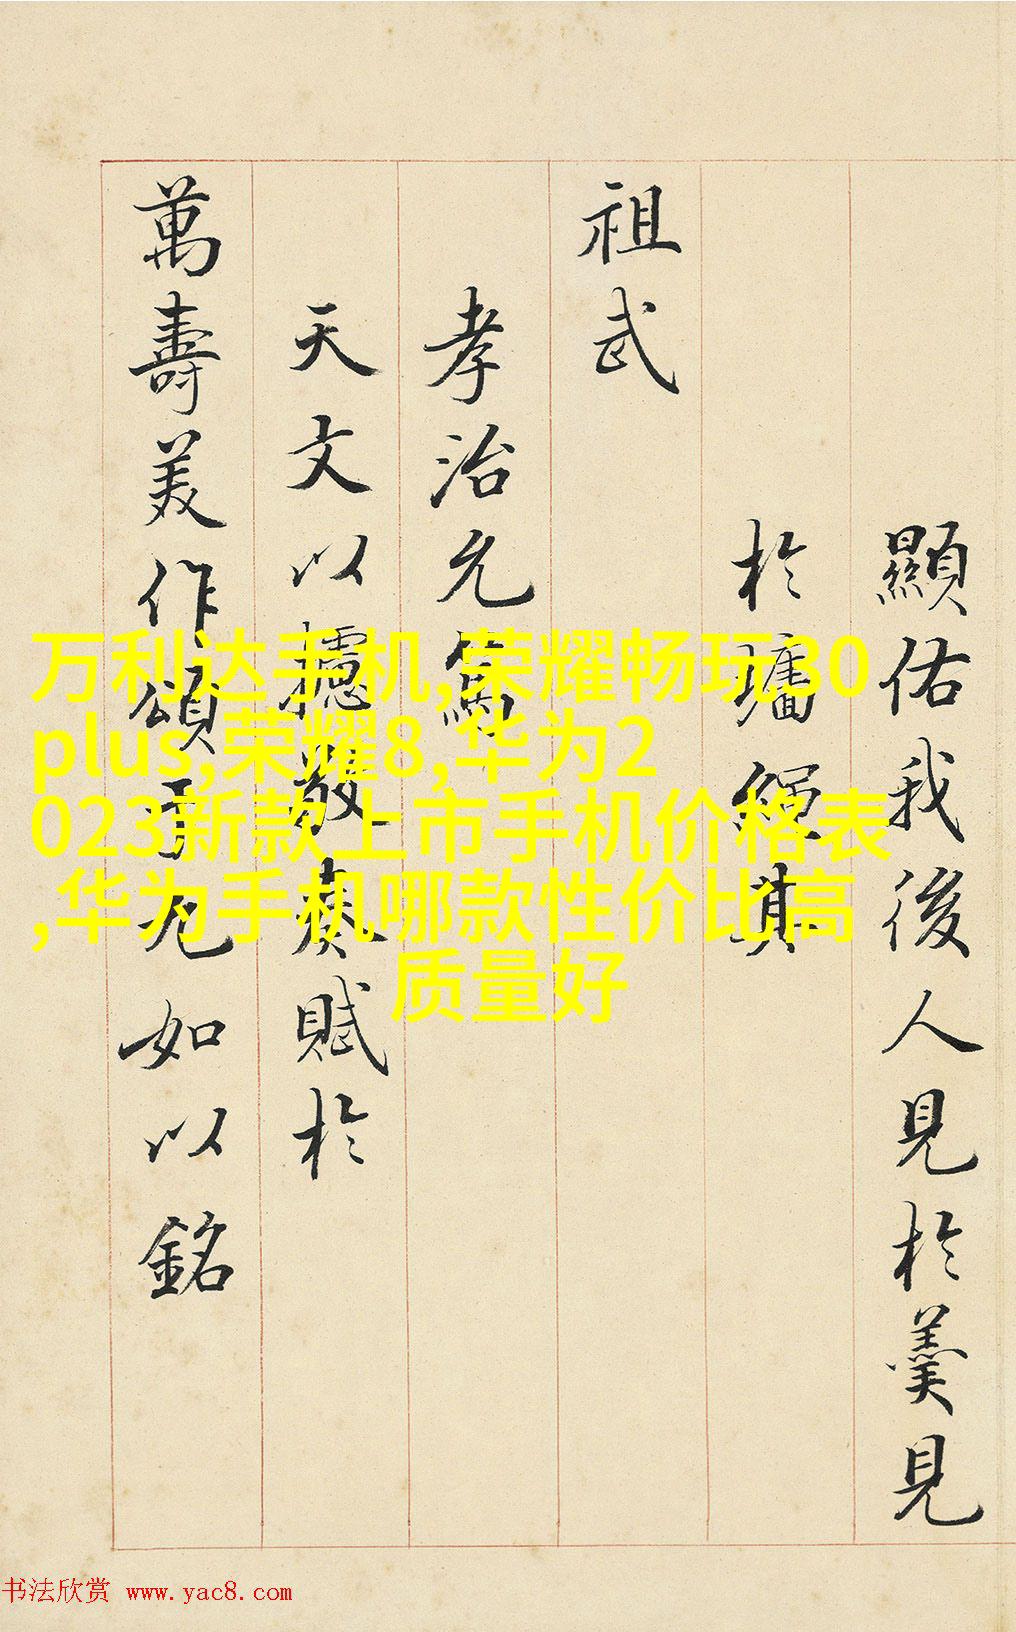 顯佑我後人見於羹見
於墻繩其
祖武
孝治允寫
天文以攄敬奏賦於
萬壽美作頌于九如以銘
万利达手机,荣耀畅玩30
plus,荣耀8,华为2
023新款上市手机价格表
,华为手机哪款性价比高
质量好
书法欣赏 www.yac8.com